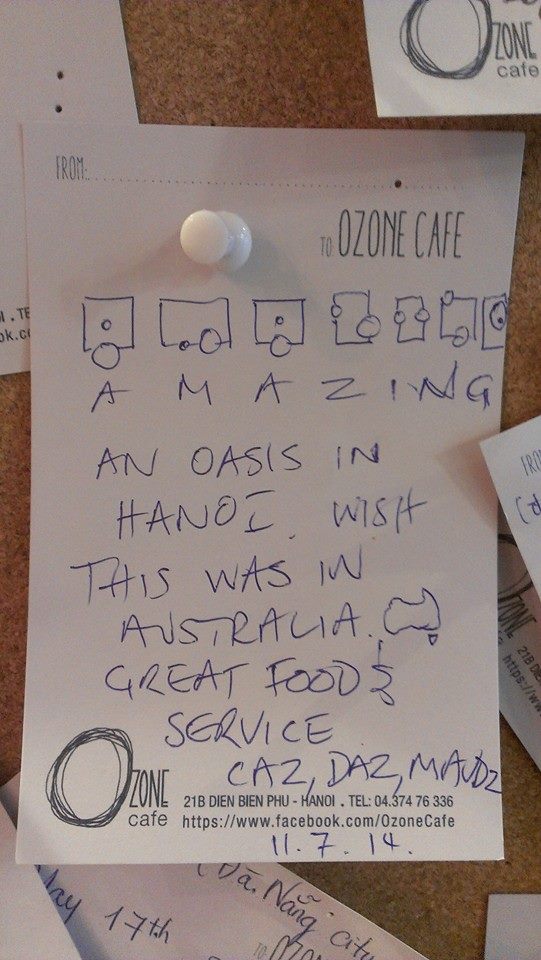 OZONE
cafe
FROM:
TO OZONE CAFE
AMAZING
AN OASIS IN
HANOI. WISH
THIS WAS IN
AUSTRALIA.
GREAT FOOD &
SERVICE
CAZ, DAZ, MAUDZ
OZONE
cafe
21B DIEN BIEN PHU - HANOI . TEL: 04.374 76 336
https://www.facebook.com/OzoneCafe
11.7.14.
(Đà Nẵng city
17th
21B DI
https://w